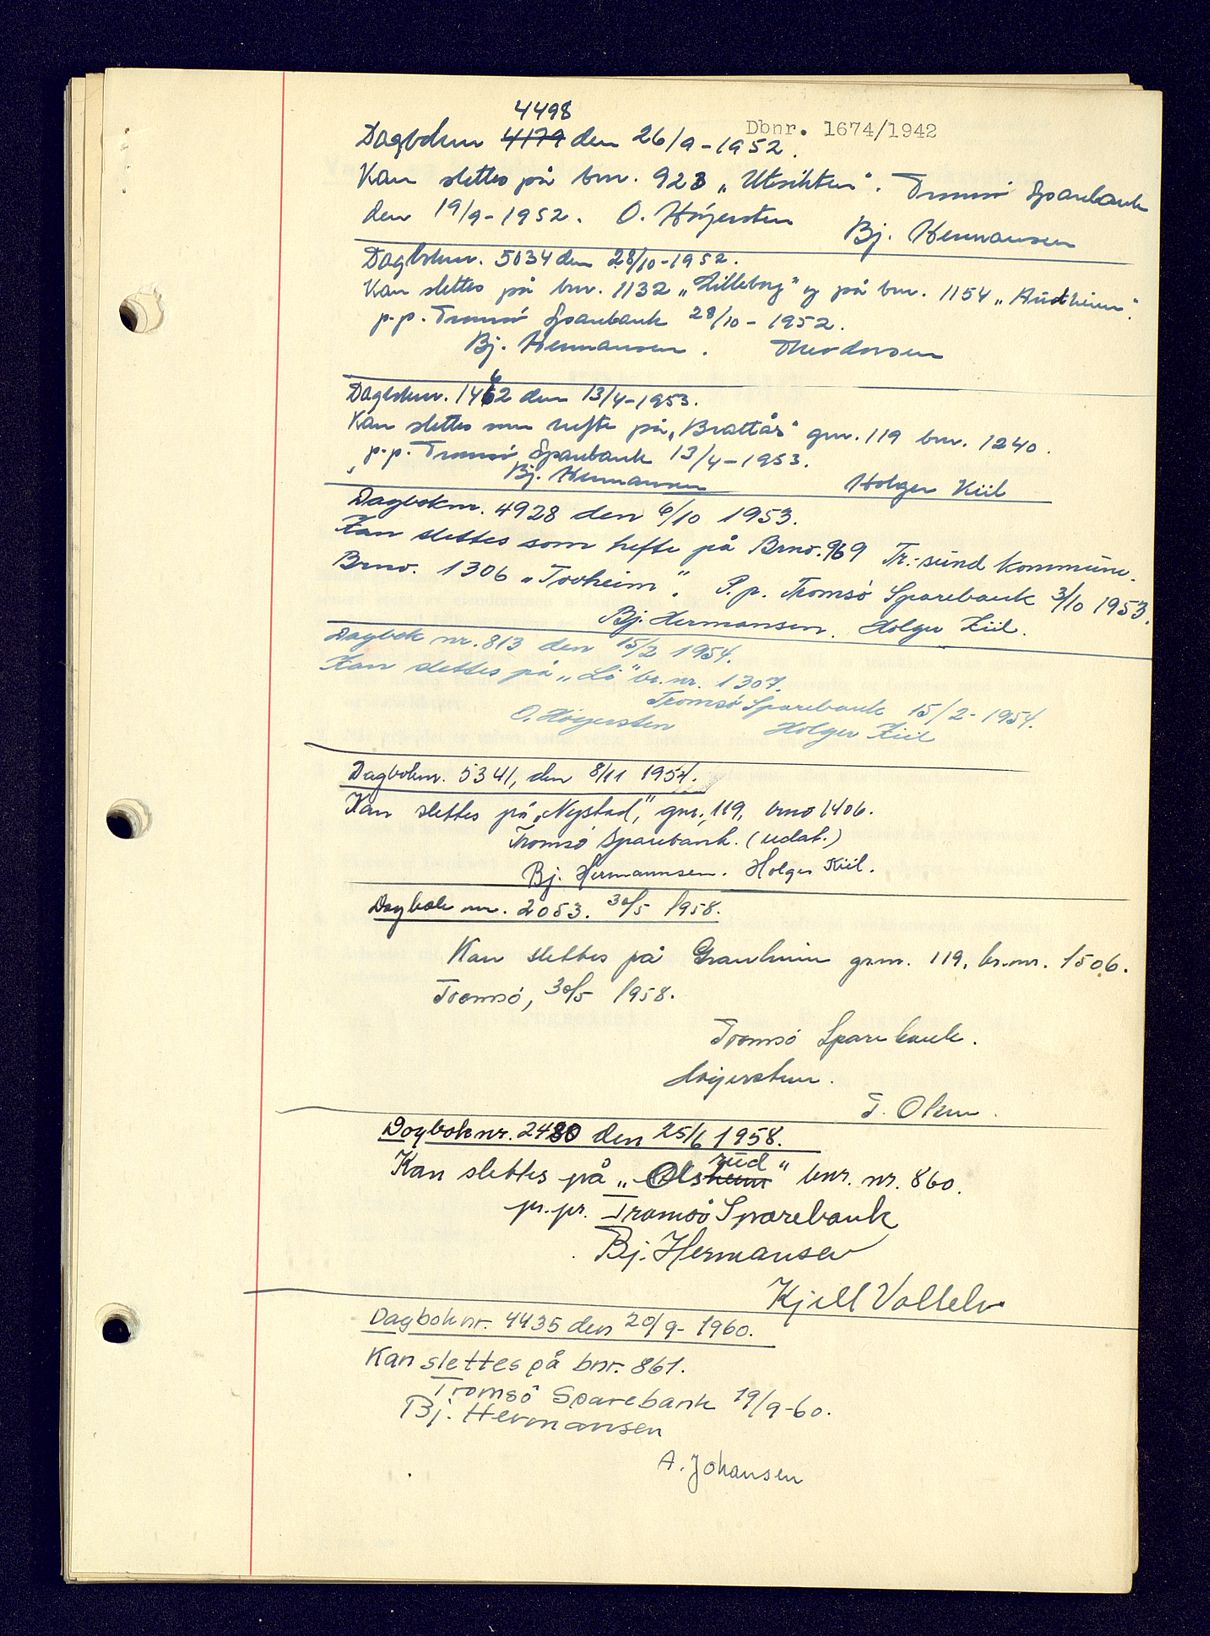 4498
Dbnr. 1674/1942
Dagboknr. 4179 den 26/9-1952.
Kan slettes på bnr. 923 „Utsikten". Tromsö Sparebank
den 19/9-1952. O. Höyersten Bj. Hermansen
Dagboknr. 5034 den 28/10-1952.
Kan slettes på bnr. 1132 „Lilleborg" og på bnr. 1154 „Audheim".
p.p. Tromsö Sparebank 28/10-1952.
Bj. Hermansen. Theodorsen
Dagboknr. 1462 den 13/4-1953.
Kan slettes som hefte på „Brattås" gnr. 119 bnr. 1240.
p.p. Tromsö Sparebank 13/4-1953.
Bj. Hermansen Holger Kiil
Dagboknr. 4928 den 6/10 1953.
Kan slettes som hefte på Brno. 969 Tr.-sund kommune.
Brno. 1306 „Tooheim". P.p. Tromsö Sparebank 3/10 1953.
Bj. Hermansen. Holger Kiil.
Dagbok nr. 813 den 15/2 1954.
Kan slettes på „Lö" br.nr. 1307.
Tromsö Sparebank 15/2-1954.
O. Höyersten Holger Kiil
Dagboknr. 5341, den 8/11 1954.
Kan slettes på „Nystad", gnr. 119, brno 1406.
Tromsö Sparebank. (udat.)
Bj. Hermannsen. Holger Kiil.
Dagbok nr. 2053. 30/5 1958.
Kan slettes på Granheim grnr. 119, br.nr. 1506.
Tromsö, 30/5 1958.
Tromsö Sparebank.
Höyersten.
T. Olsen.
Dagboknr. 2480 den 25/6 1958.
rud
Kan slettes på „Olsheim" bnr. nr. 860.
pr.pr. Tromsö Sparebank
Bj. Hermansen
Kjell Vollelv
Dagboknr. 4435 den 20/9-1960.
Kan slettes på bnr. 861.
Tromsö Sparebank 19/9-60.
Bj. Hermansen
A. Johansen